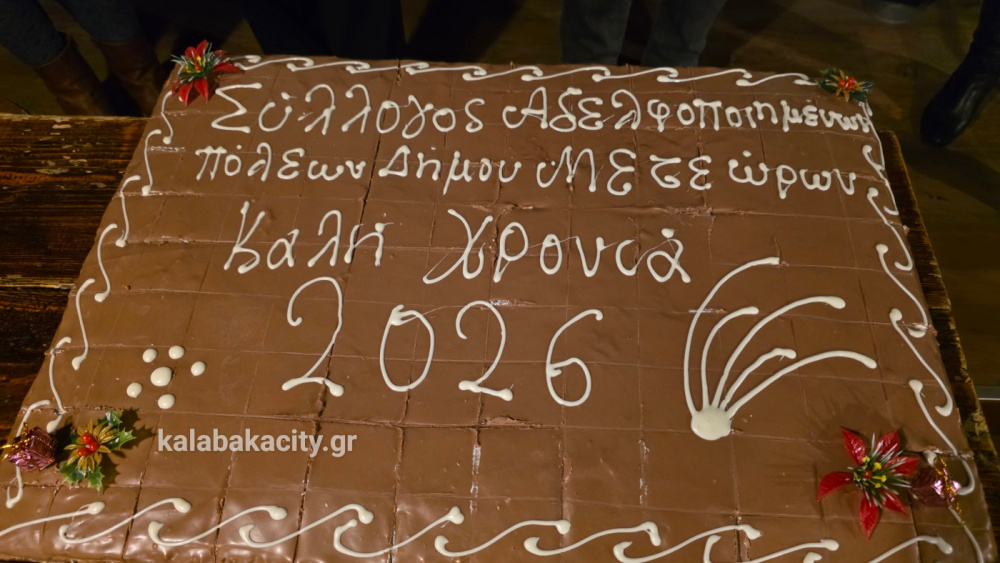 Σύλλογος Αδελφοποιημένων
πόλεων Δήμου ΜΕτε ώρων
Καλή Χρονιά
2026
kalabakacity.gr